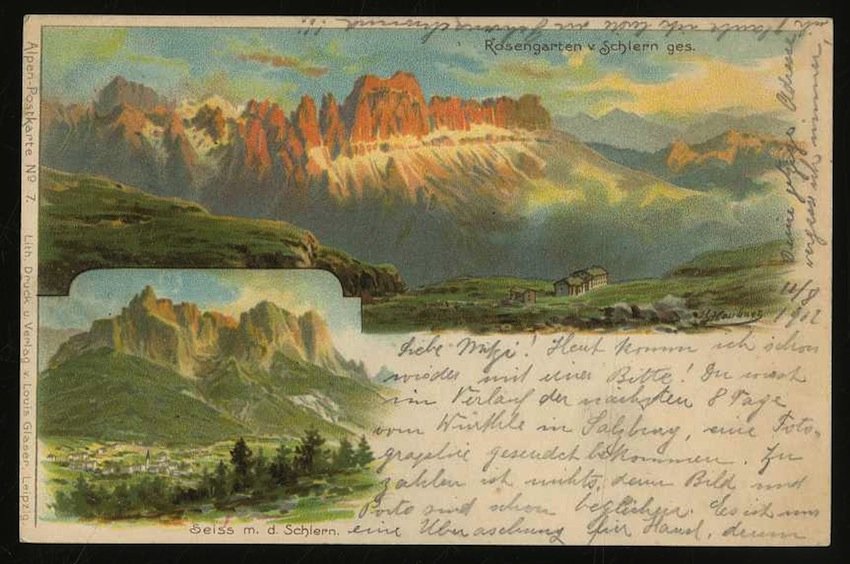 Rosengarten v. Schlern ges.
Alpen-Postkarte No. 7. Lith. Druck u. Verlag v. Louis Glaser, Leipzig.
Seiss m. d. Schlern.
11/8
Liebe Mitzi! Heut komm ich schon
wieder mit einer Bitte! Du wirst
im Verlauf der nächsten 8 Tage
vom Würthle in Salzburg, eine Foto-
grafie gesendet bekommen. Zu
zahlen ist nichts, denn Bild und
Porto sind schon beglichen. Es ist nur
eine Überaschung für Hansl, drum
Deine Adresse
vergess ich immer,